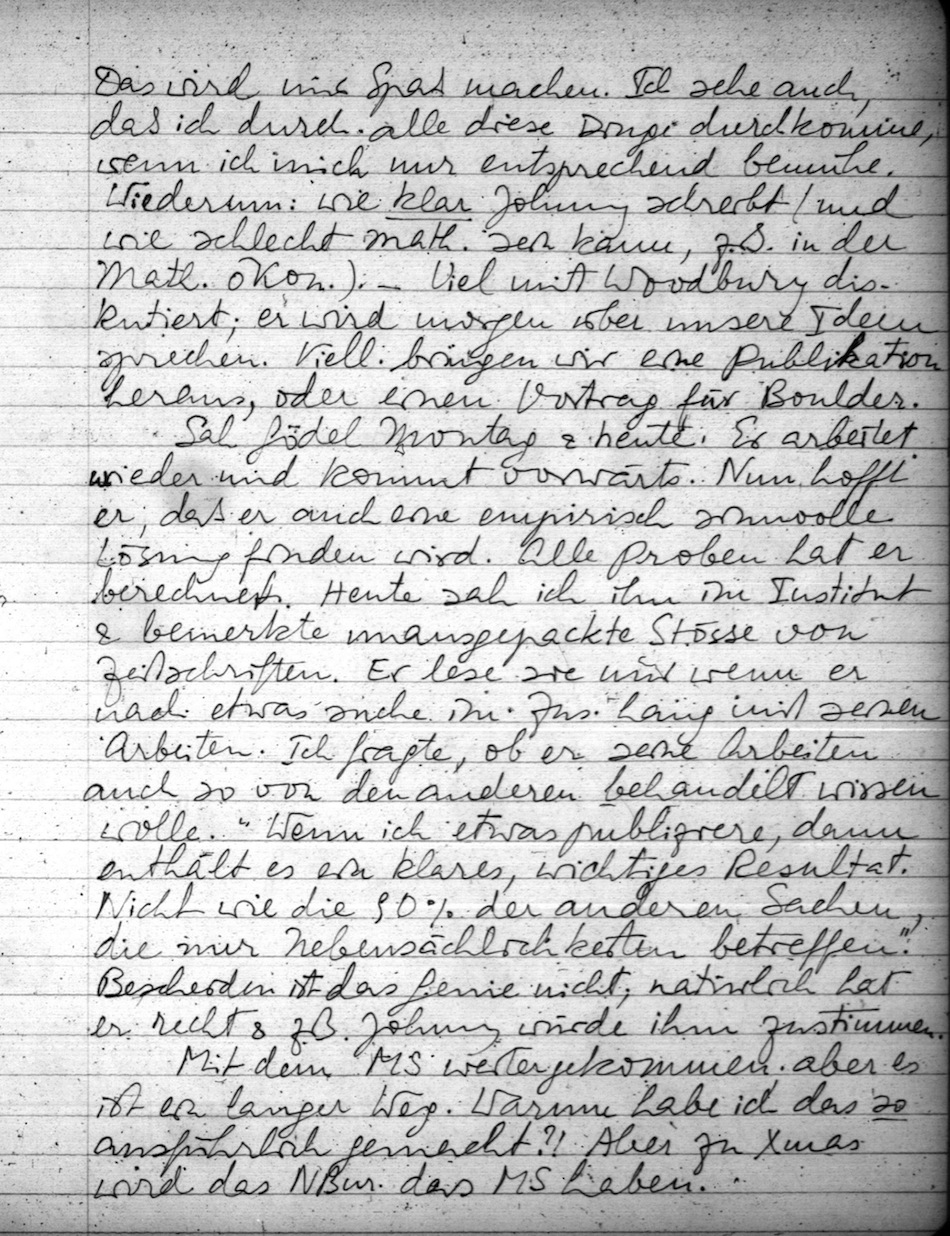 Das wird mir Spass machen. Ich sehe auch,
dass ich durch alle diese Dinge durchkomme,
wenn ich mich nur entsprechend bemühe.
Wiederum: wie klar Johnny schreibt (und
wie schlecht math. sein kann, z.B. in der
Math. Ökon.). – Viel mit Woodbury dis-
kutiert; er wird morgen über unsere Ideen
sprechen. Viell. bringen wir eine Publikation
heraus, oder einen Vortrag für Boulder.
Sah Gödel Montag & heute. Er arbeitet
wieder und kommt vorwärts. Nun hofft
er, dass er auch eine empirisch sinnvolle
Lösung finden wird. Alle Proben hat er
berechnet. Heute sah ich ihn im Institut
& bemerkte unausgepackte Stösse von
Zeitschriften. Er lese sie nur wenn er
nach etwas suche im Zus.hang mit seinen
Arbeiten. Ich fragte, ob er seine Arbeiten
auch so von den anderen behandelt wissen
wolle. "Wenn ich etwas publiziere, dann
enthält es ein klares, wichtiges Resultat.
Nicht wie die 90% der anderen Sachen,
die nur Nebensächlichkeiten betreffen".
Bescheiden ist das Genie nicht; natürlich hat
er recht & z.B. Johnny würde ihm zustimmen.
Mit dem MS weitergekommen. aber es
ist ein langer Weg. Warum habe ich das so
ausführlich gemacht?! Aber zu Xmas
wird das NBur. das MS haben.